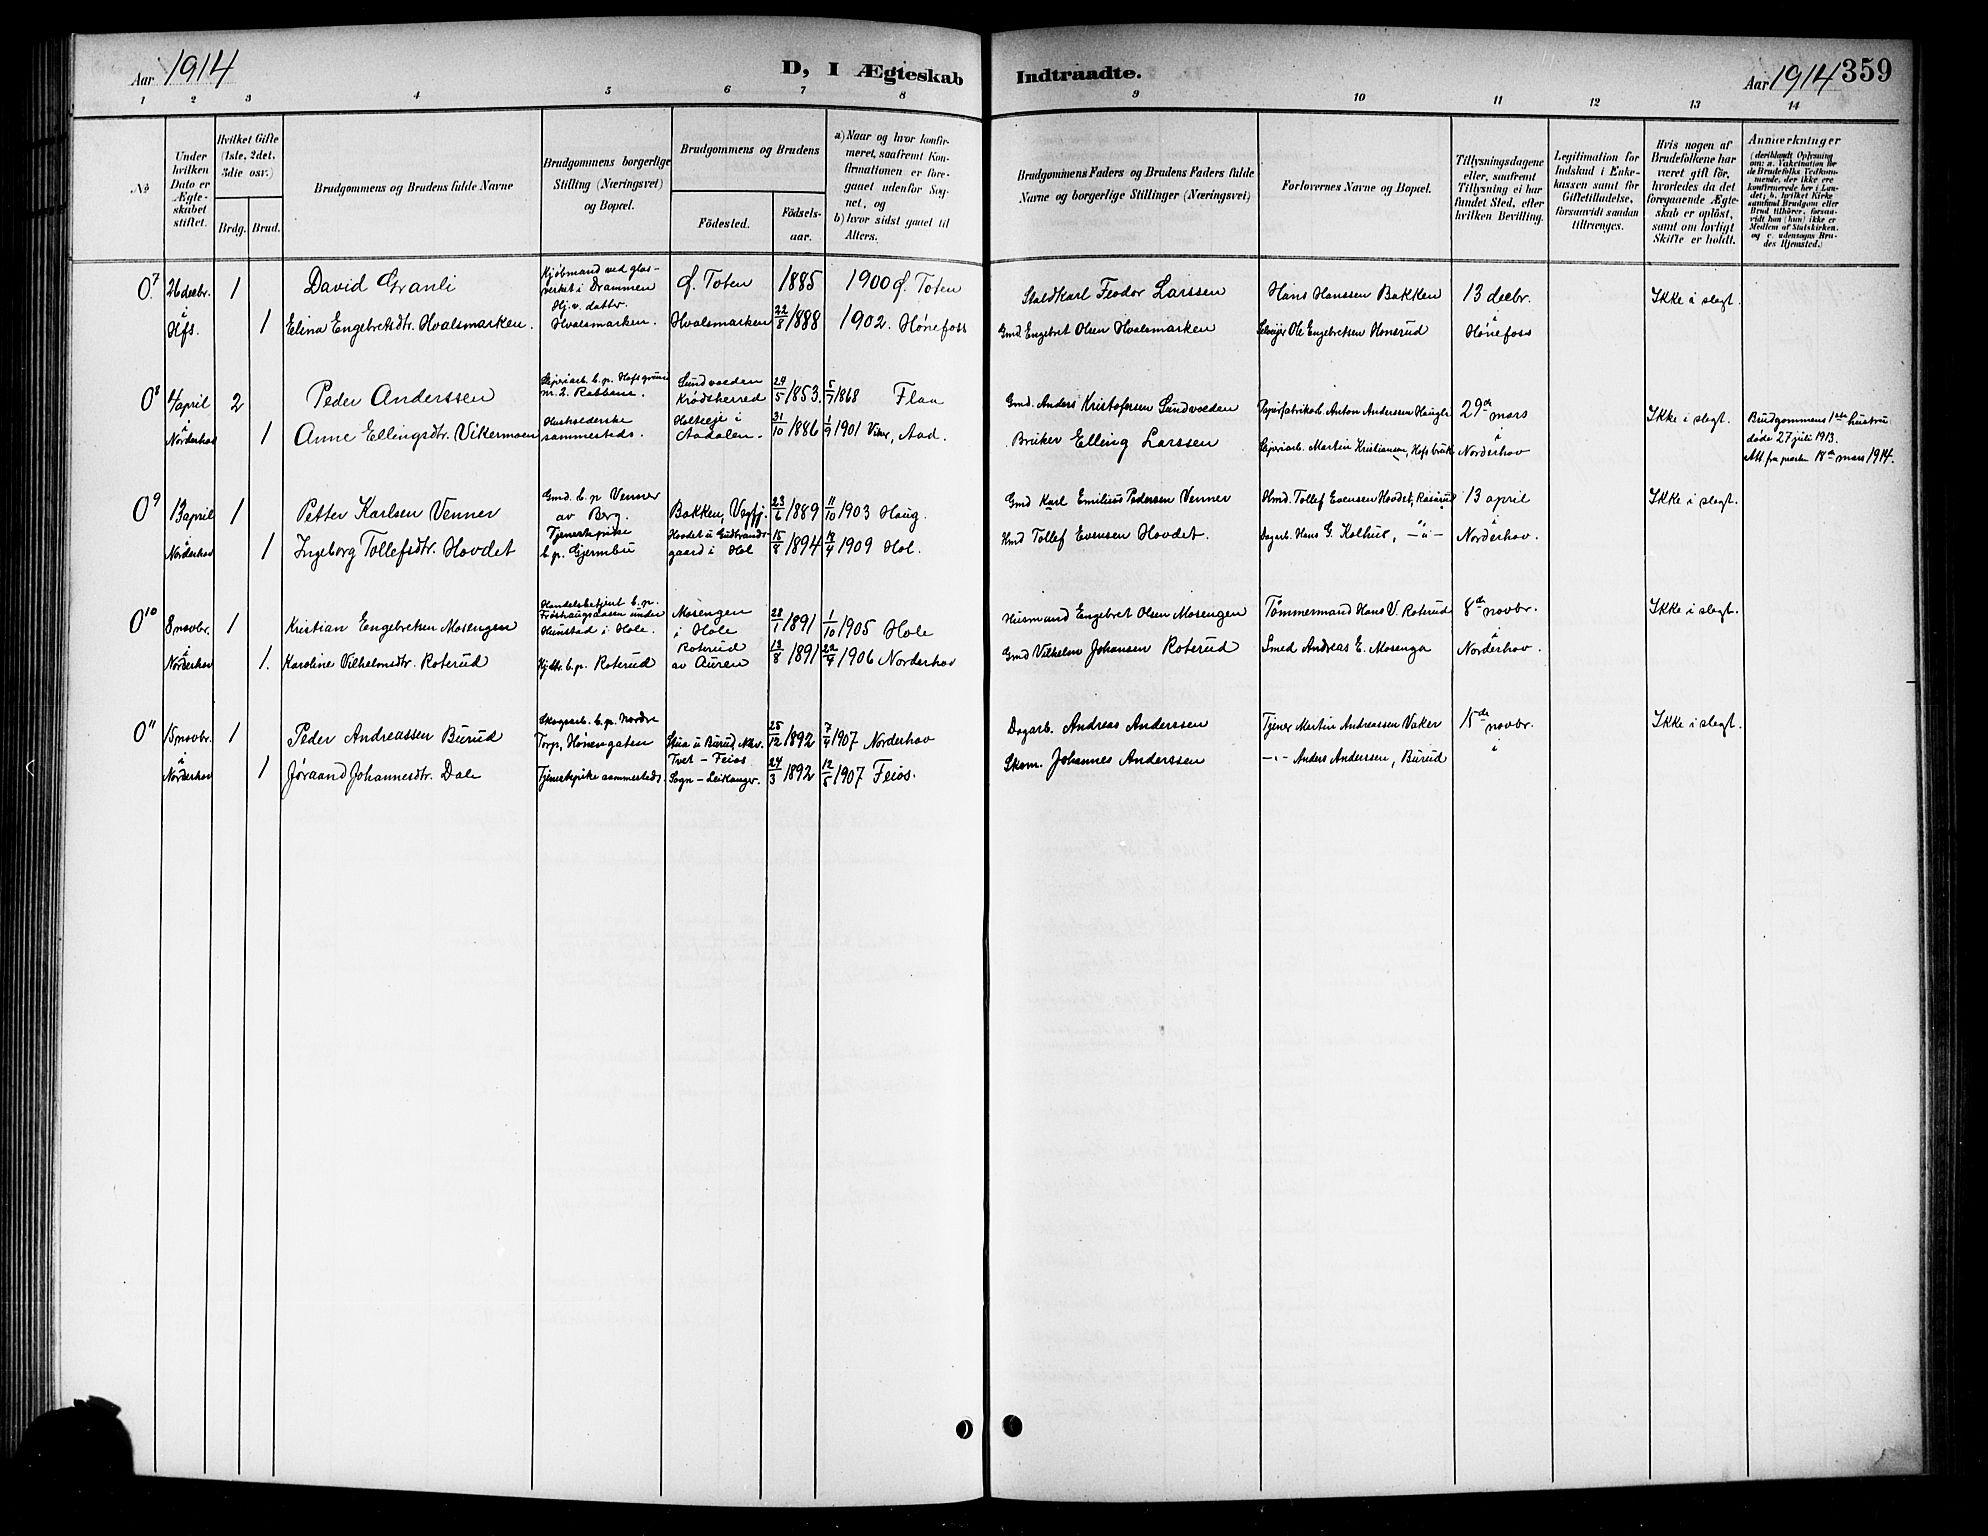 Aar 1914
D, I Ægteskab
Indtraadte.
Aar 1914 359
1 2 3 4 5 6 7 8 9 10 11 12 13 14
No
Under hvilken Dato er Ægteskabet stiftet.
Hvilket Gifte (1ste, 2det, 3die osv.)
Brdg. Brud.
Brudgommens og Brudens fulde Navne
Brudgommens borgerlige Stilling (Næringsvei) og Bopæl.
Brudgommens og Brudens
Födested. Födsels-aar.
a) Naar og hvor konfirmeret, saafremt Konfirmationen er foregaaet udenfor Sognet, og
b) hvor sidst gaaet til Alters.
Brudgommens Faders og Brudens Faders fulde Navne og borgerlige Stillinger (Næringsvei)
Forlovernes Navne og Bopæl.
Tillysningsdagene eller, saafremt Tillysning ei har fundet Sted, efter hvilken Bevilling.
Legitimation for Indskud i Enkekassen samt for Giftetilladelse, forsaavidt saadan tiltrænges.
Hvis nogen af Brudefolkene har været gift før, hvorledes da det foregaaende Ægteskab er opløst, samt om lovligt Skifte er holdt.
Anmærkninger
(deriblandt Oplysning om: a. Vakcination for de Brudefolks Vedkommende, der ikke ere konfirmerede her i Landet; b. hvilket Kirkesamfund Brudgom eller Brud tilhører, forsaavidt han (hun) ikke er Medlem af Statskirken, og c. udensogns Brudes Hjemsted.)
0 7 26 decbr. 1 David Granli Kjöbmand ved glasverket i Drammen Ø. Toten 1885 1900 Ø. Toten Staldkarl Feodor Larssen Hans Hanssen Bakken 13 decbr. Ikke i slegt.
i Hfs. 1 Elina Engebretsdtr. Hvalsmarken. Hj.v. dattr. Hvalsmarken. Hvalsmarken 22/8 1888 1902. Hönefoss Gmd. Engebret Olsen Hvalsmarken Selveier Ole Engebretsen Honerud i Hönefoss
0 8 4/april 2 Peder Anderssen Sliperiarb. b.p. Hofsgrund nr. 2. Rabbane. Sundvoeden Krödsherred 24/5 1853. 5/7 1868 Flaa Gmd. Anders Kristofersen Sundvoeden Papirfabrikarb. Anton Anderssen Haugle 29de mars Ikke i slegt. Brudgommens 1ste hustru
i Norderhov 1 Anne Ellingsdtr. Vikermoen Husholderske sammesteds. Holteeje i Aadalen. 31/10 1886 1/9 1901 Viker, Aad. Bruker Elling Larssen Sliperiarb. Martin Kristiansen, Hofsbruk i Norderhov döde 27 juli 1913.
Att fra presten 18de mars 1914.
0 9 13 april 1 Petter Karlsen Venner Gmd. b.p. Venner av Berg. Bakken, Vegfj. 23/6 1889 11/10 1903 Haug. Gmd Karl Emilius Pedersen Venner Hmd. Tollef Evensen Hovdet, Rösrud 13 april Ikke i slegt.
i Norderhov 1 Ingeborg Tollefsdtr. Hovdet Tjenestepike b.p. Gjermbu Hovdet u Gudbrandsgaard i Hol 15/8 1894 18/4 1909 Hol. Hmd Tollef Evensen Hovdet. Dagarb. Hans G. Kolhus, -"- i Norderhov.
0 10 8 novbr. 1 Kristian Engebretsen Mosengen Handelsbetjent b.p. Fröshaugsaasen under Hunstad i Hole. Mosengen i Hole 28/1 1891 1/10 1905 Hole Husmand Engebret Olsen Mosengen Tömmermand Hans V. Roterud 8de novbr. Ikke i slegt.
i Norderhov 1. Karoline Vilhelmsdtr. Roterud Hjdtr. b.p. Roterud Roterud av Auren 13/8 1891 22/4 1906 Norderhov Gmd Vilhelm Johansen Roterud Smed Andreas E. Mosenga i Norderhov.
0 11 15 novbr. 1 Peder Andreassen Burud Skogsarb. b.p. Nordre Torp, Hönengaten Stua u Burud, Nhv. 25/12 1892 7/4 1907 Norderhov Dagarb. Andreas Anderssen Tjener Martin Andreassen Vaker 15de novbr. Ikke i slegt.
i Norderhov 1 Jöraand Johannesdtr. Dale Tjenestepike sammesteds. Tvet - Feios Sogn - Leikanger. 24/3 1892 12/5 1907 Feios. Skom. Johannes Anderssen -"- Anders Anderssen, Burud i